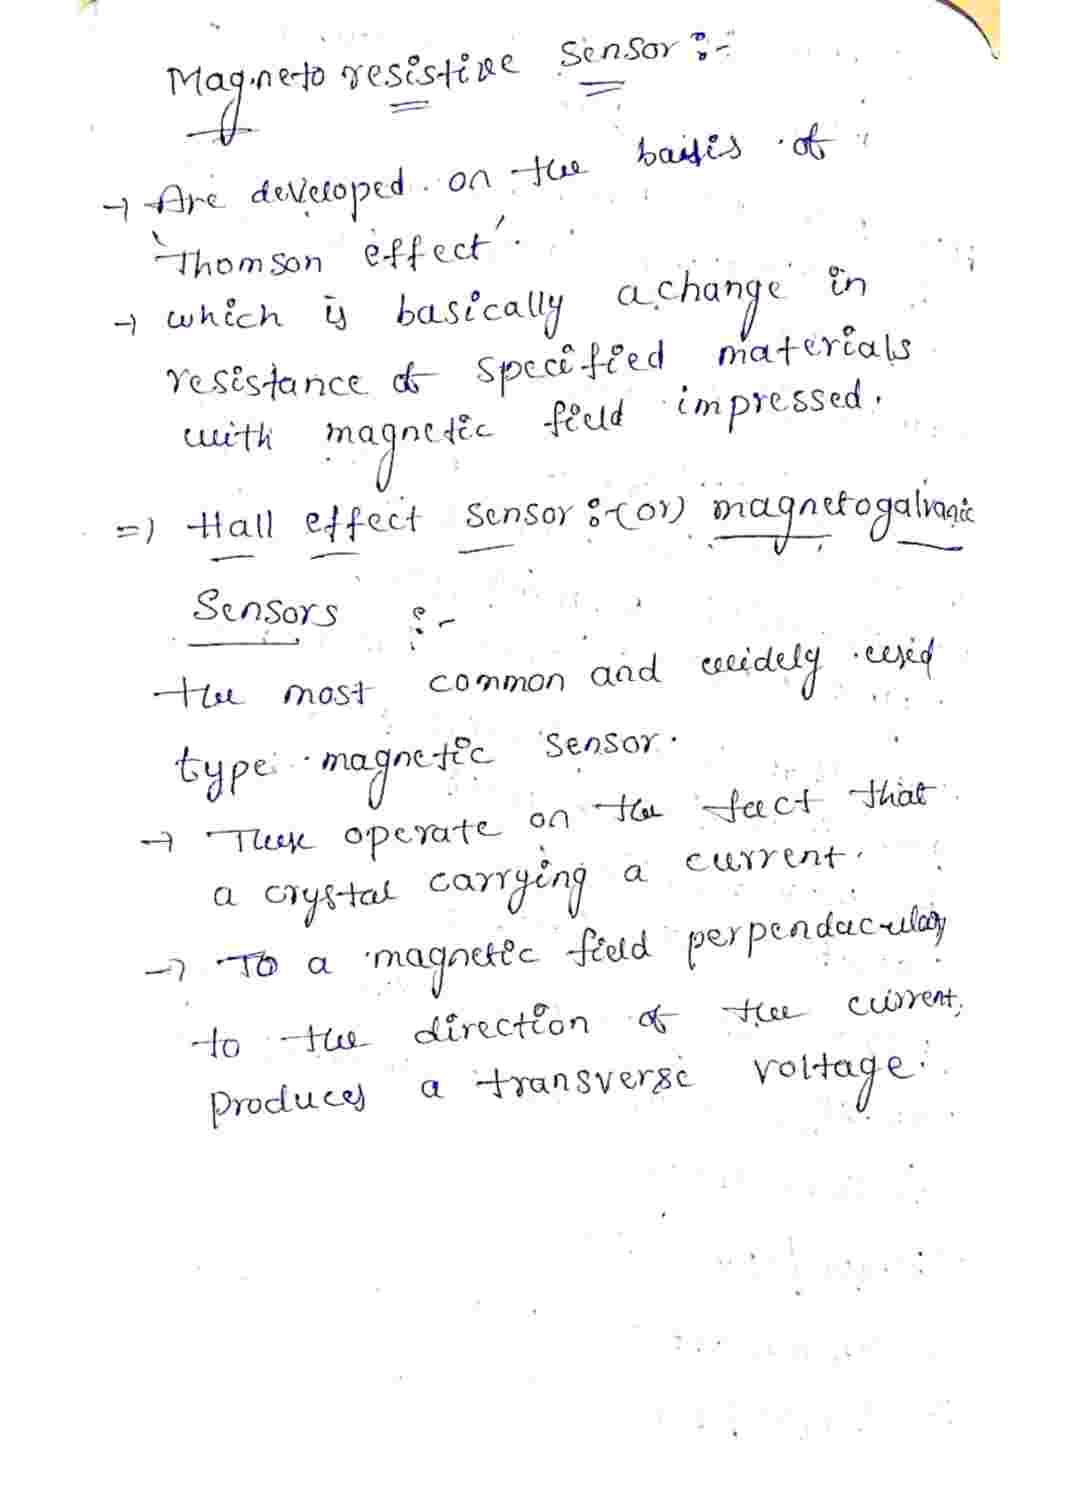 Magneto resistive Sensor :-
→ Are developed on the basis of
'Thomson effect'.
→ which is basically a change in
resistance of specified materials
with magnetic field impressed.
=) Hall effect sensor :- (or) magnetogalvanic
Sensors :-
the most common and widely used
type magnetic sensor.
→ These operate on the fact that
a crystal carrying a current.
→ To a magnetic field perpendacular
to the direction of the current,
produces a transverse voltage.